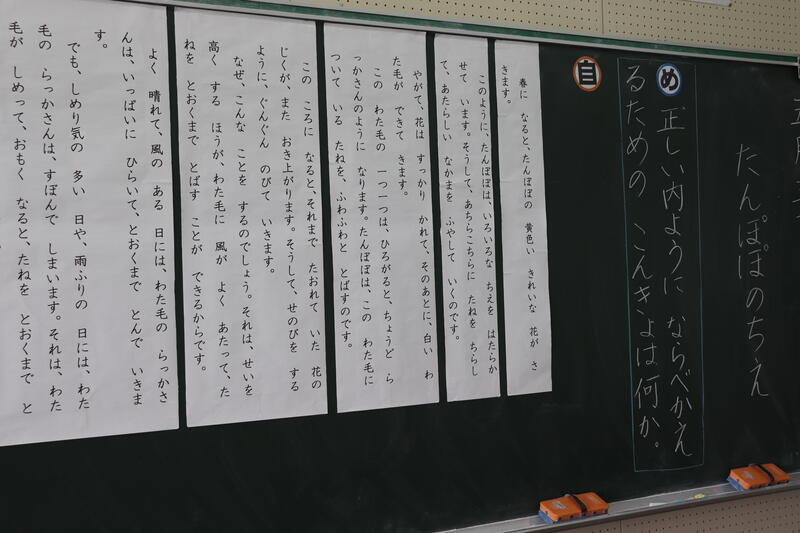 たんぽぽのちえ
め
正しい内ように ならべかえ
るための こんきょは何か。
自
春に なると、たんぽぽの 黄色い きれいな 花が さ
きます。
このように、たんぽぽは、いろいろな ちえを はたらか
せて います。そうして、あちらこちらに たねを ちらし
て、あたらしい なかまを ふやして いくのです。
やがて、花は すっかり かれて、そのあとに、白い わ
た毛が できて きます。
この わた毛の 一つ一つは、ひろがると、ちょうど ら
っかさんのように なります。たんぽぽは、この わた毛に
ついて いる たねを、ふわふわと とばすのです。
この ころに なると、それまで たおれて いた 花の
じくが、また おき上がります。そうして、せのびを する
ように、ぐんぐん のびて いきます。
なぜ、こんな ことを するのでしょう。それは、せいを
高く する ほうが、わた毛に 風が よく あたって、た
ねを とおくまで とばす ことが できるからです。
よく 晴れて、風の ある 日には、わた毛の らっかさ
んは、いっぱいに ひらいて、とおくまで とんで いきま
す。
でも、しめり気の 多い 日や、雨ふりの 日には、わた
毛の らっかさんは、すぼんで しまいます。それは、わた
毛が しめって、おもく なると、たねを とおくまで と